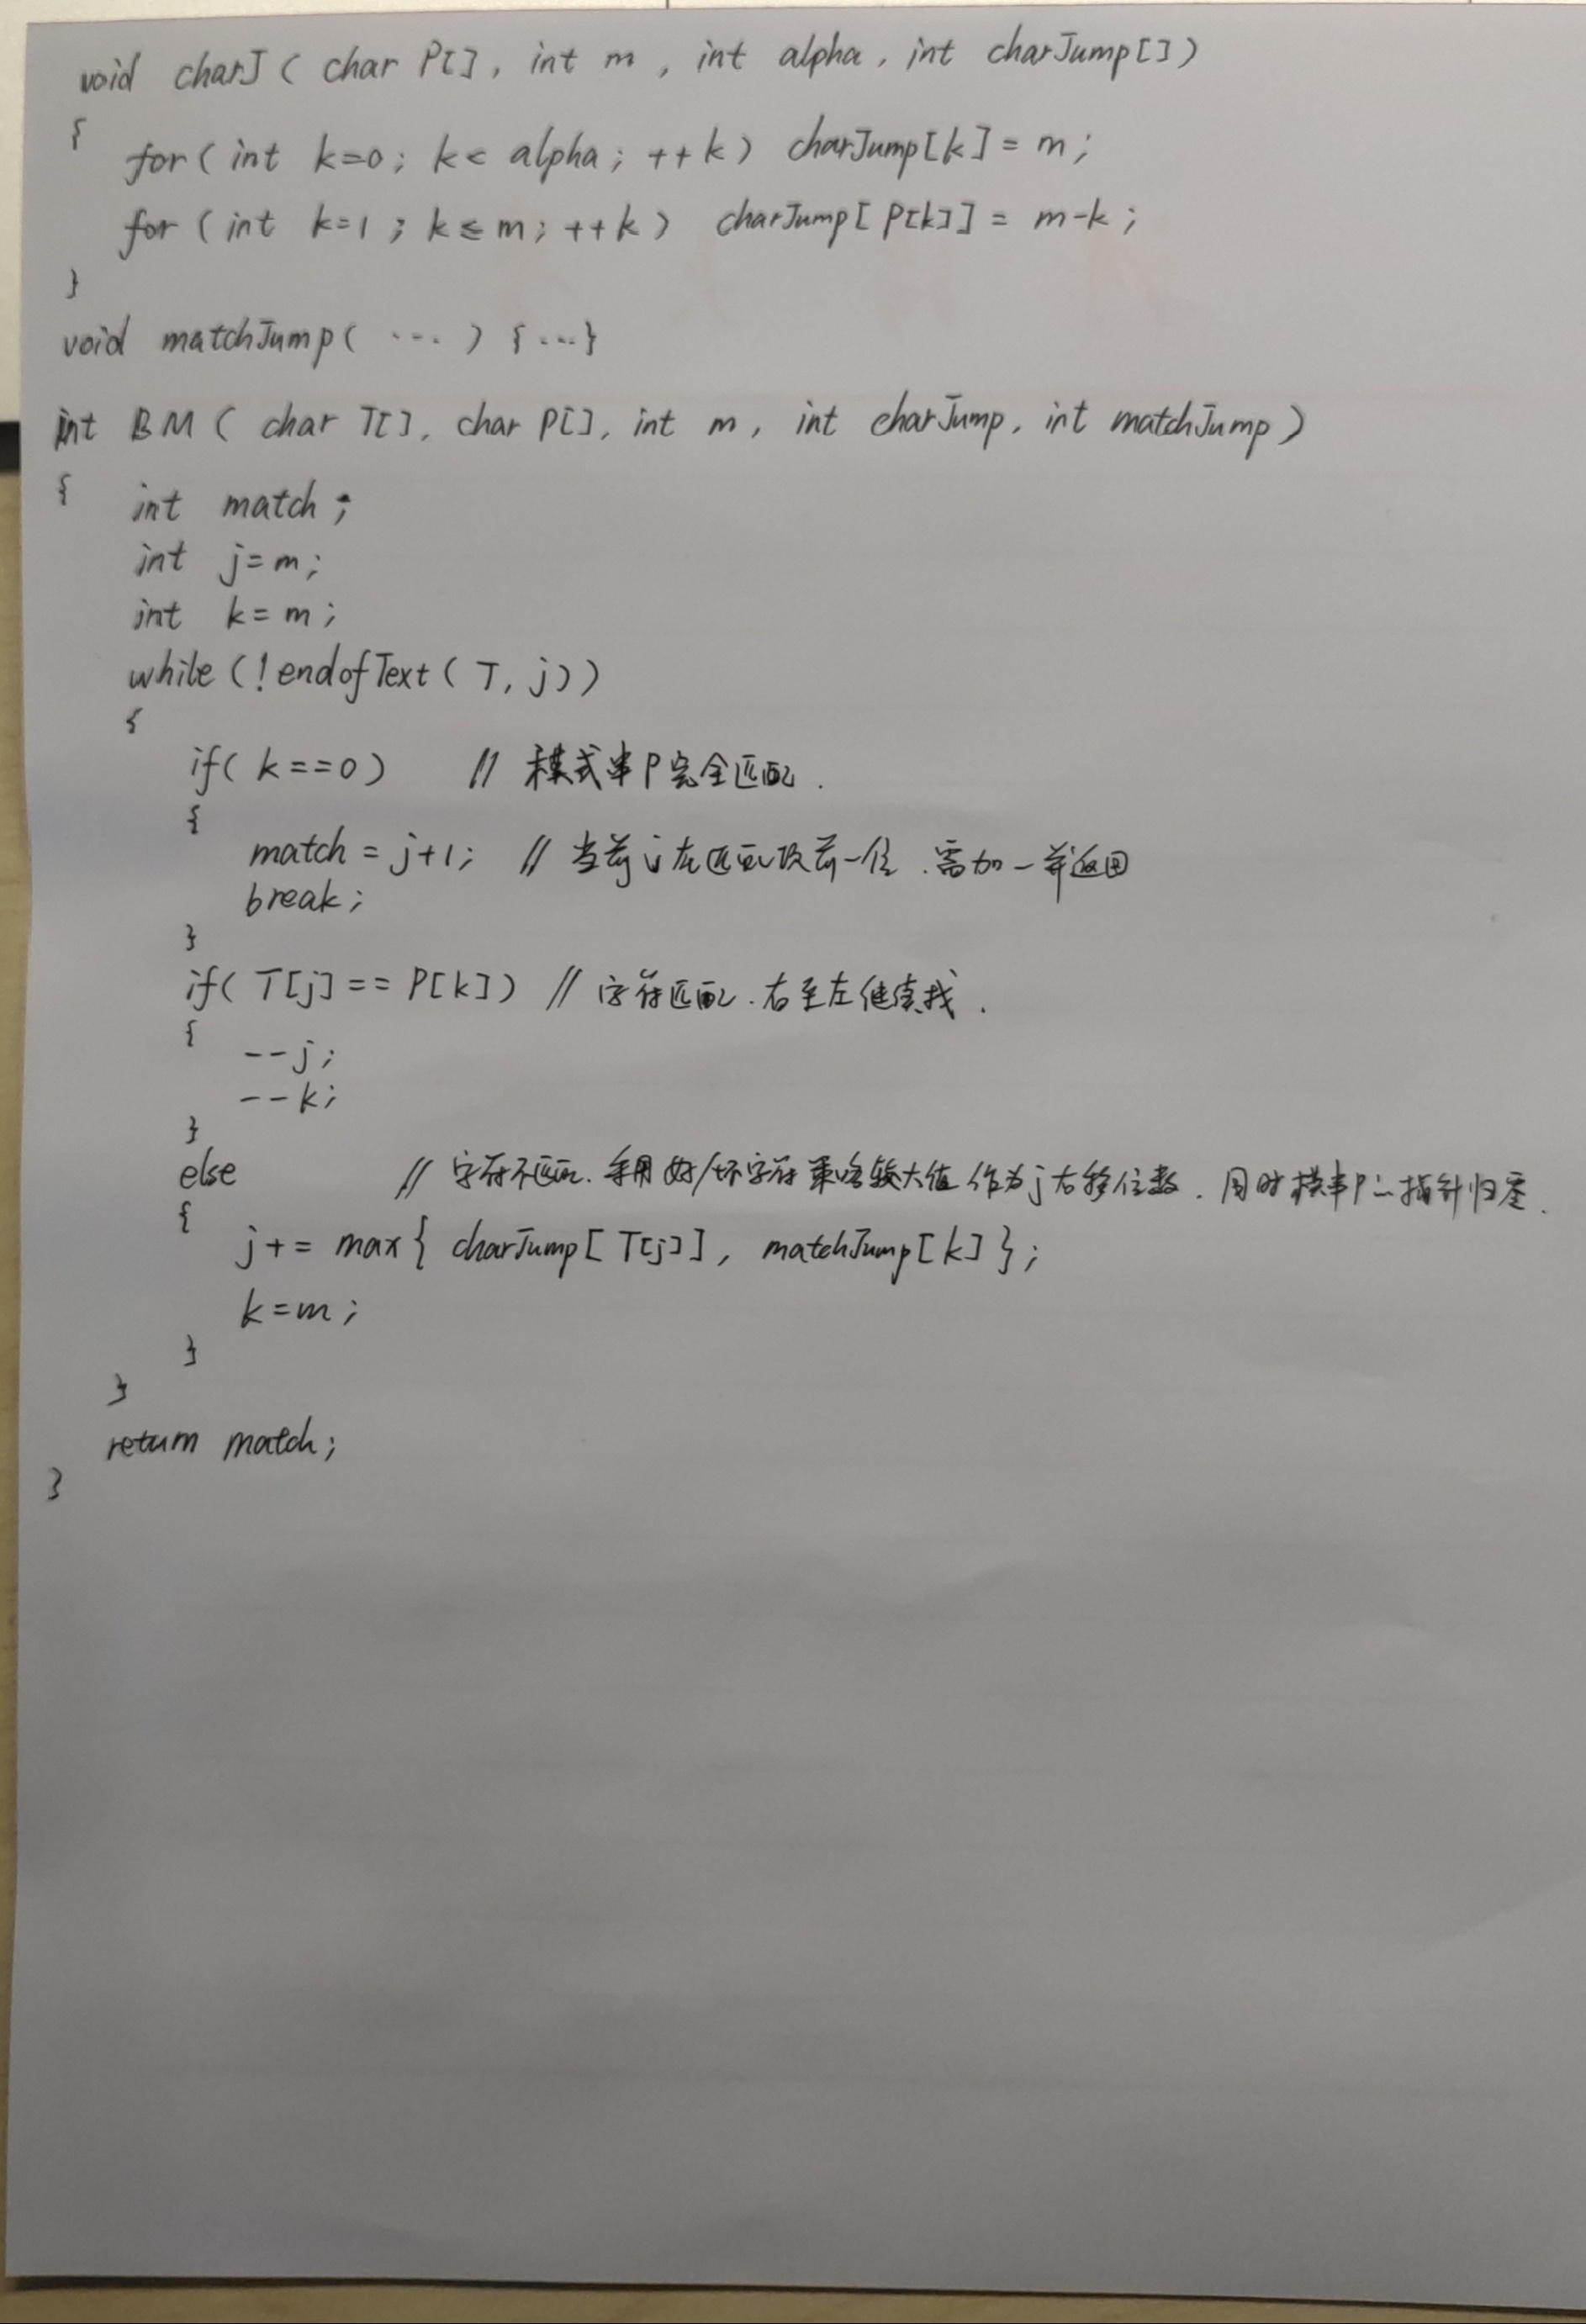 void charJ ( char P[], int m, int alpha, int charJump[])
{
for ( int k=0; k< alpha; ++k) charJump[k] = m;
for ( int k=1; k≤m; ++k) charJump[ P[k]] = m-k;
}
void matchJump( ... ) {...}
int BM ( char T[], char P[], int m, int charJump, int matchJump)
{ int match;
int j=m;
int k=m;
while (!endofText( T, j))
{
if( k==0) // 模式串P完全匹配.
{
match = j+1; // 当前j在匹配段前一位.需加一并返回
break;
}
if( T[j] == P[k]) // 字符匹配.右至左继续找.
{
--j;
--k;
}
else // 字符不匹配.采用好/坏字符策略较大值作为j右移位数.同时模串P的指针归零.
{
j += max{ charJump[ T[j]], matchJump[k] };
k=m;
}
}
return match;
}